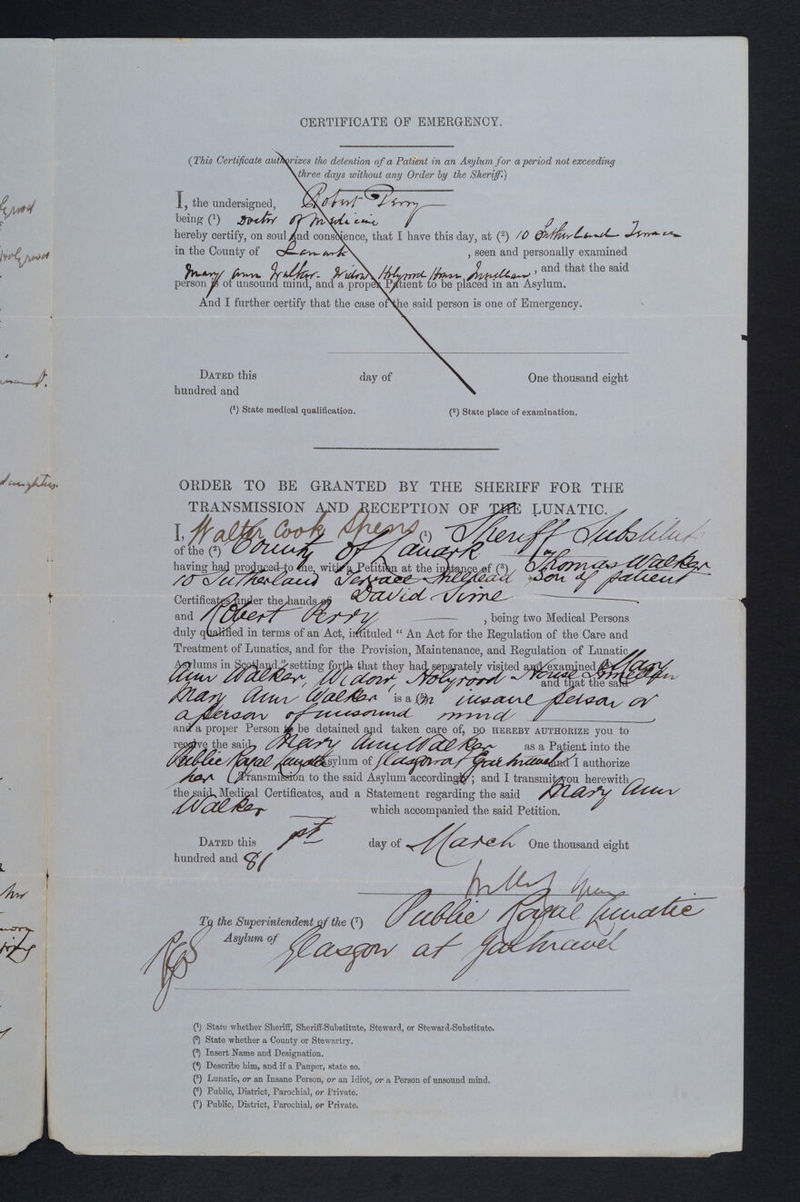 CERTIFICATE OF EMERGENCY.
(This Certificate authorizes the detention of a Patient in an Asylum for a period not exceeding
three days without any Order by the Sheriff.)
I, the undersigned, Robert Perry
being (1) Doctor of Medicine
hereby certify, on soul and conscience, that I have this day, at (2) 10 Sutherland Terrace
in the County of Lanark , seen and personally examined
Mary Ann Walker. Widow, Holyrood House, , and that the said
person is of unsound mind, and a proper Patient to be placed in an Asylum.
And I further certify that the case of the said person is one of Emergency.
DATED this day of One thousand eight
hundred and
(1) State medical qualification. (2) State place of examination.
ORDER TO BE GRANTED BY THE SHERIFF FOR THE
TRANSMISSION AND RECEPTION OF THE LUNATIC.
I, Walter Cook Spens (1) Sheriff Substitute
of the (2) County of Lanark
having had produced to me, with a Petition at the instance of (3) Thomas Walker
10 Sutherland Terrace Hillhead Son of patient
Certificates under the hands of David Sime
and Robert Perry , being two Medical Persons
duly qualified in terms of an Act, intituled “ An Act for the Regulation of the Care and
Treatment of Lunatics, and for the Provision, Maintenance, and Regulation of Lunatic
Asylums in Scotland,” setting forth that they had separately visited and examined (4) Mary
Ann Walker, Widow, Holyrood House and that the said
Mary Ann Walker is a (5) insane person or
a person of unsound mind
and a proper Person to be detained and taken care of, DO HEREBY AUTHORIZE you to
receive the said Mary Ann Walker as a Patient into the
Public Royal Lunatic Asylum of Glasgow at Gartnavel and I authorize
her Transmission to the said Asylum accordingly; and I transmit you herewith
the said Medical Certificates, and a Statement regarding the said Mary Ann
Walker which accompanied the said Petition.
DATED this 1st day of March One thousand eight
hundred and 81
Walter Spens
To the Superintendent of the (7) Public Royal Lunatic
Asylum of Glasgow at Gartnavel
(1) State whether Sheriff, Sheriff-Substitute, Steward, or Steward-Substitute.
(2) State whether a County or Stewartry.
(3) Insert Name and Designation.
(4) Describe him, and if a Pauper, state so.
(5) Lunatic, or an Insane Person, or an Idiot, or a Person of unsound mind.
(6) Public, District, Parochial, or Private.
(7) Public, District, Parochial, or Private.